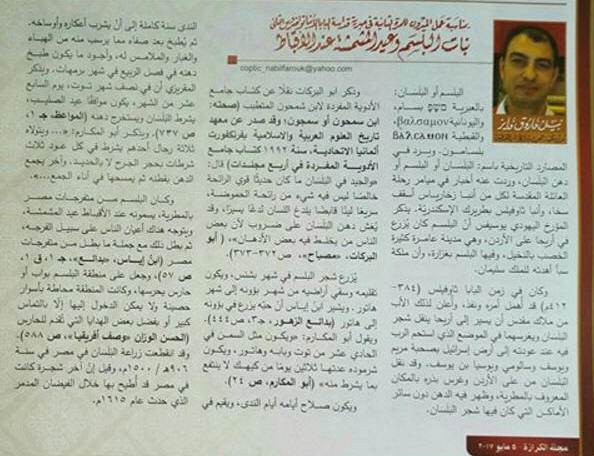 بمناسبة عمل الميرون للمرة الثانية في حبرية قداسة البابا الأنبا تواضروس الثاني
نبات البلسم وعيد المشمشة عند الأقباط
coptic_nabilfarouk@yahoo.com
نبيل فاروق فايز
البلسم أو البلسان:
بالعبرية בשם بسام،
واليونانية βαλσαμον
والقبطية ΒΑλCΑΜΟΝ
بلسامون. ويرد في
المصادر التاريخية باسم: البلسان أو البلسم أو
دهن البلسان، وردت عنه أخبار في ميامر رحلة
العائلة المقدسة لكل من أنبا زخارياس أسقف
سخا، وأنبا ثاوفيلس بطريرك الإسكندرية. يذكر
المؤرخ اليهودي يوسيفس أنَّ البلسان كان يُزرع
في أريحا على الأردن، وهي مدينة عامرة كثيرة
الخصب بالنخيل، وفيها البلسم بغزارة، وأن ملكة
سبأ أهدته للملك سليمان.
وكان في زمن البابا ثاوفيلس (٣٨٤-
٤١٢م) قد أهمل أمره ونفذ، وأعلن لذلك الأب
من ملاك مقدس أن يسير إلى أريحا ينقل شجر
البلسان ويغرسهما في الموضع الذي استحم الرب
فيه عند عودته إلى أرض إسرائيل بصحبة مريم
ويوسف وسالومي ويوسيا بن يوسف. وقد نقل
البلسان من على الأردن وغرس بذره بالمكان
المعروف بالمطرية، وظهر فيه الدهن دون سائر
الأماكن التي كان فيها شجر البلسان.
وذكر ابو البركات نقلا عن كتاب جامع
الأدوية المفردة لابن شمحون المتطبب (صحته:
ابن سمحون أو سمجون؛ وقد صدر عن معهد
تاريخ العلوم العربية والاسلامية بفرنكفورت
ألمانيا الاتحادية، سنة ١٩٩٢ كتاب جامع
الأدوية المفردة في أربع مجلدات) قال:
«والجيد في البلسان ما كان حديثًا قوي الرائحة
خالصًا ليس فيه شيء من رائحة الحموضة،
سريعًا لينًا قابضًا يلدغ اللسان لدغًا يسيرًا، وقد
يُغش دهن البلسان على ضروب لأن بعض
الناس من يخلط فيه بعض الأدهان»، (أبو
البركات، «مصباح»، ص ٣٧٢-٣٧٣).
يُزرع شجر البلسم في شهر بشنس، ويكون
تقليمه وسقي أراضيه من شهر بؤونه إلى شهر
هاتور. ويشير ابنُ إياس أنَّ حبّه يزرع في بؤونه
إلى هاتور (بدائع الزهور، جـ٣، ص٤٤٤).
ويقول أبو المكارم: «ويكون مثل السمن في
الحادي عشر من توت وبابه وهاتور، ويكون
شرموده عدتها ثلاثين يومًا من كيهك لا ينتفع
بما يشرط منه» (أبو المكارم، ص ٢٤).
ويكون صلاح أيامه أيام الندى، ويقيم في
الندى سنة كاملة إلى أنْ يشرب أعكاره وأوساخه.
ثم يُطبخ بعد صفاه مما يرسب منه من الهباء
والغبار والملامس له، وأجود ما يكون طبخ
دهنه في فصل الربيع في شهر برمهات. ويذكر
المقريزي أن في نصف شهر توت، يوم السابع
عشر من الشهر، يكون موافقًا عيد الصليب،
يشرط البلسان ويستخرج دهنه (المواعظ، جـ١،
ص ٧٣٧). ويذكر أبو المكارم: «...ويتولاه
ثلاثة رجال أحدهم يشرط في كل عود ثلاث
شرطات بحجر الجرح لا بالحديد. وآخر يجمع
الدهن بقطنه ثم يسمحها في أناء الجمع...».
وكان البلسم من متفرجات مصر
بالمطرية، يسمونه عند الأقباط عيد المشمشة،
ويتوجه هناك أعيان الناس على سبيل الفرجه،
ثم بطل ذلك مع جملة ما بطل من متفرجات
مصر (ابنُ إياس، «بدائع»، جـ١، ق١،
ص ٥٧)، وجعل على منطقة البلسم بواب أو
حارس يحرسها، وكانت المنطقة محاطة بأسوار
حصينة ولا يمكن الدخول إليها إلّا بالتماس
كبير أو بفضل بعض الهدايا التي تُقدم للحارس
(الحسن الوزان «وصف أفريقيا»، ص ٥٨٨).
وقد انقطعت زراعة البلسان في مصر في سنة
٩٠٦هـ / ١٥٠٠م، وقيل إنَّ آخر شجرة كانت
في مصر قد أُطيح بها خلال الفيضان المدمر
الذي حدث عام ١٦١٥م.
مجلة الكرازة - ٥ مايو ٢٠١٧